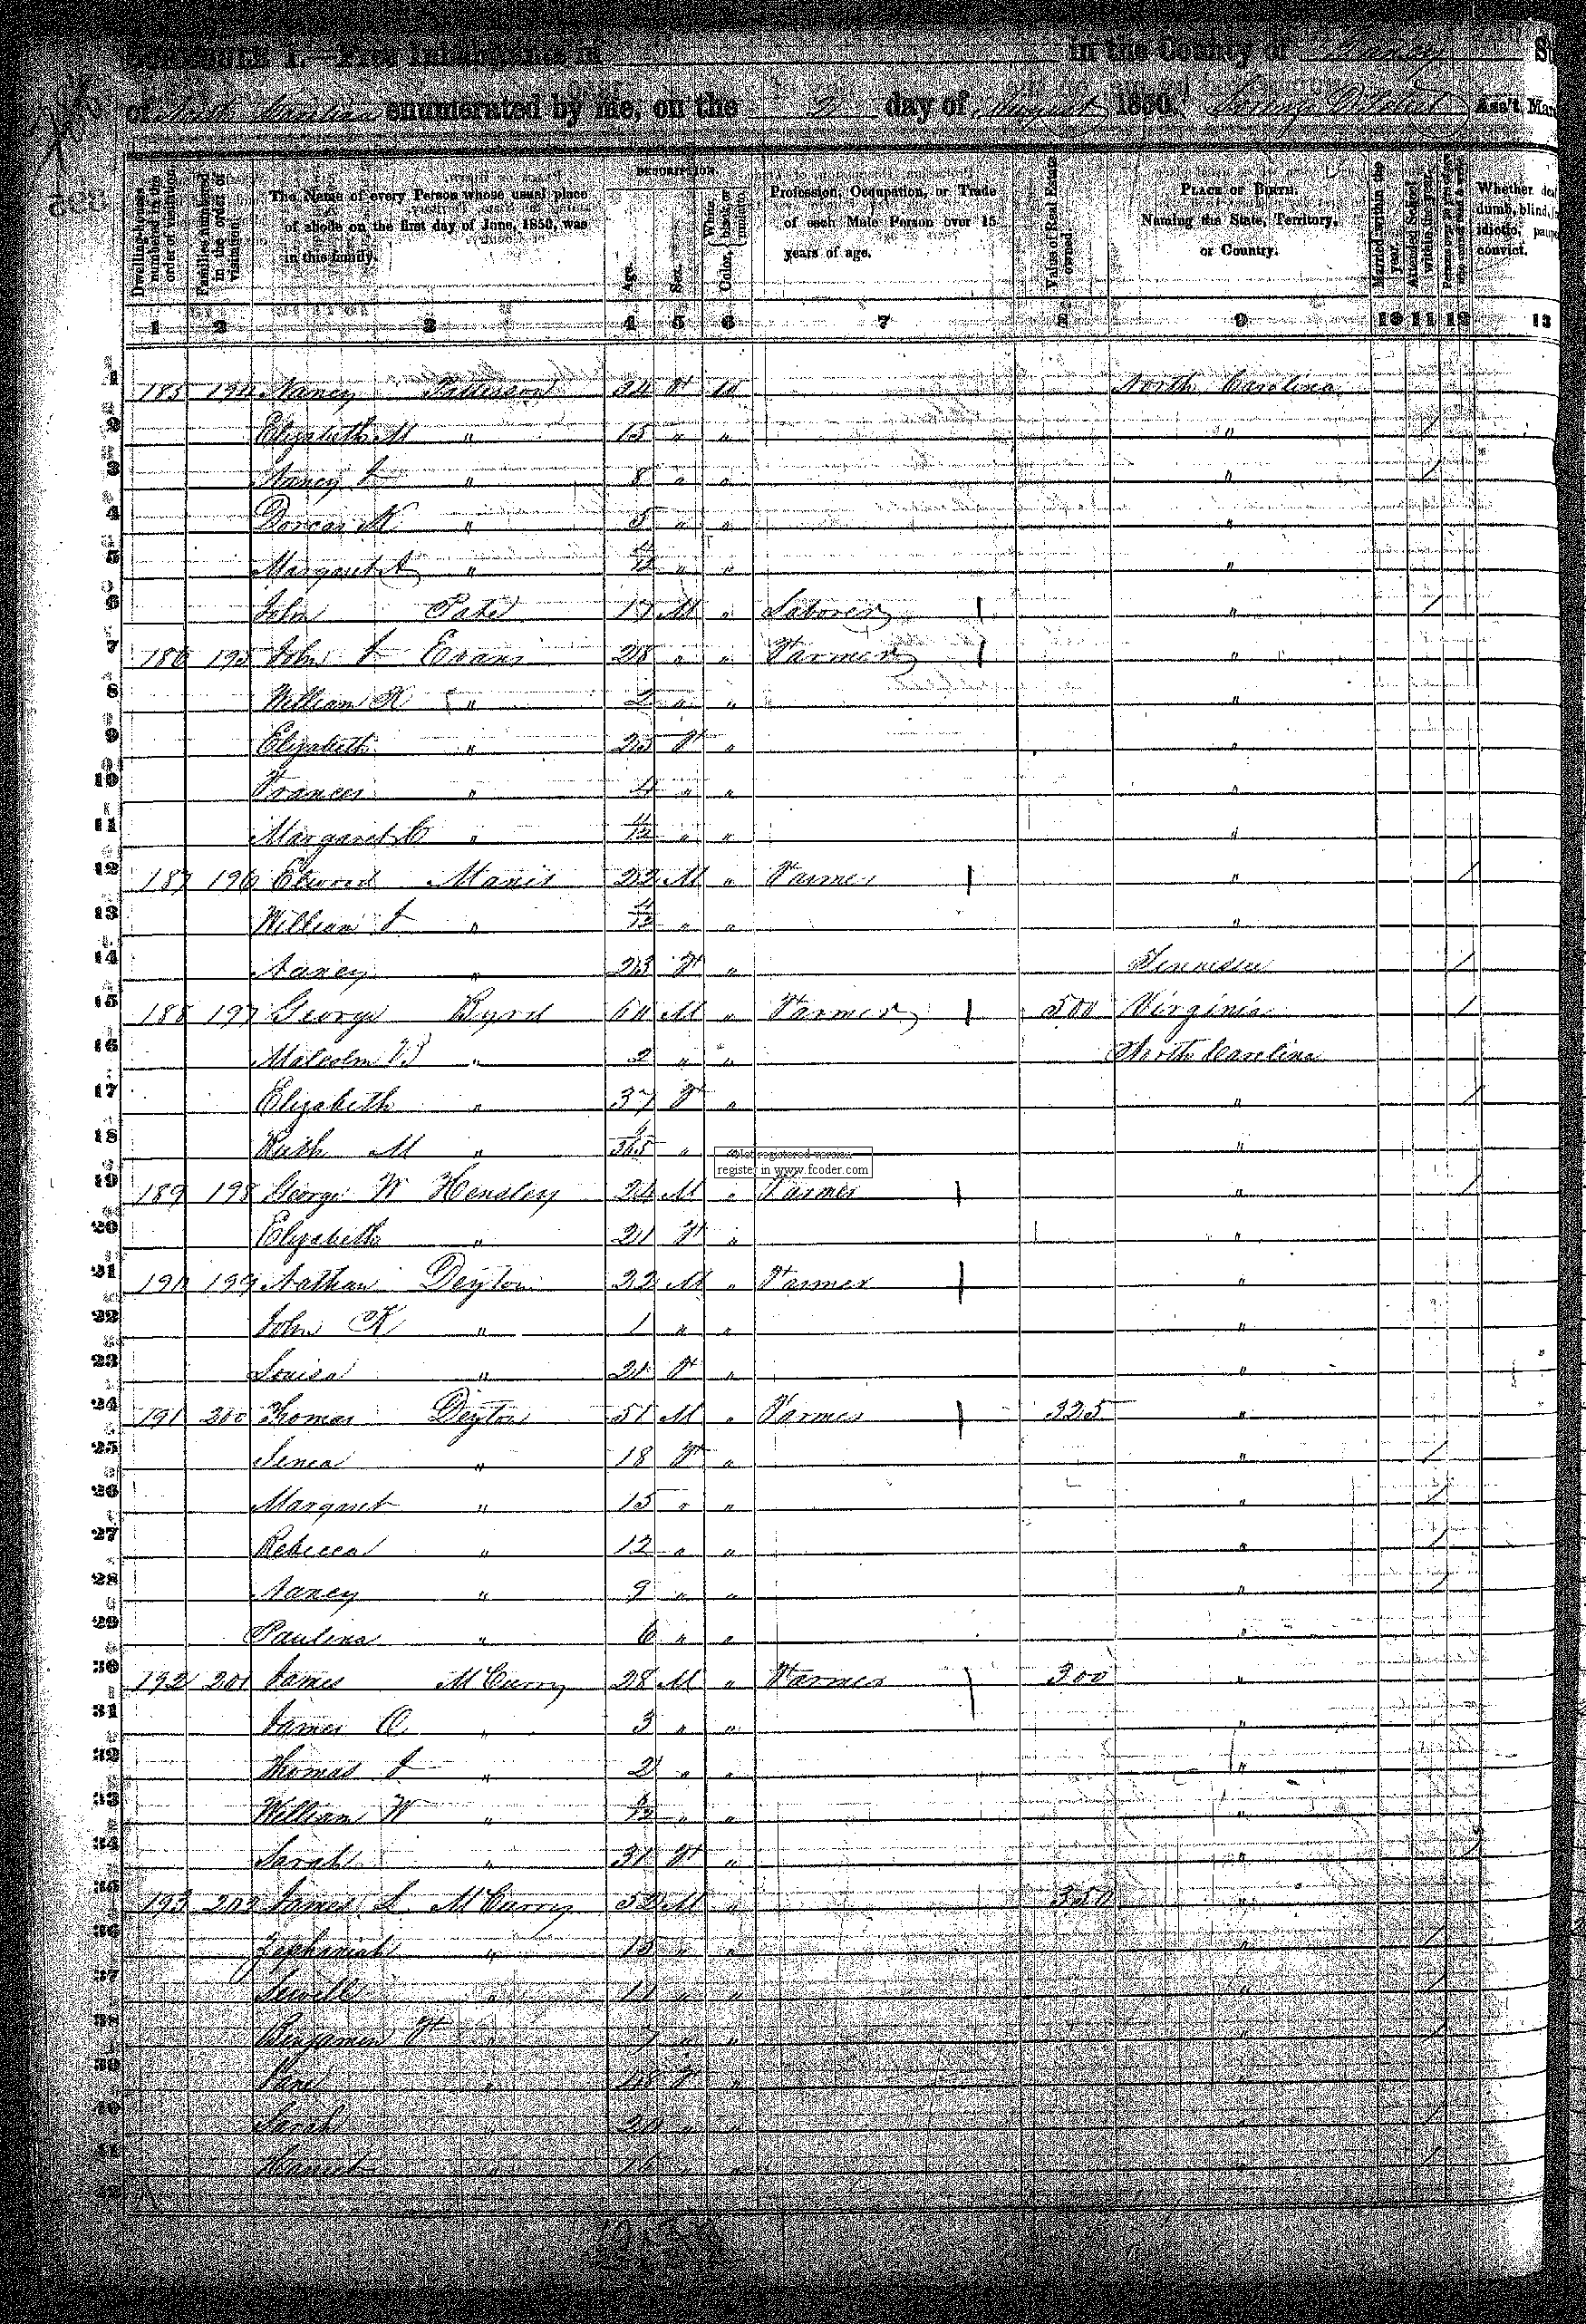 SCHEDULE I.—Free Inhabitants in in the County of Yancey
of North Carolina enumerated by me, on the day of August 1850. Ass't Mar
Dwelling-houses numbered in the order of visitation.
Families numbered in the order of visitation.
The Name of every Person whose usual place of abode on the first day of June, 1850, was in this family.
DESCRIPTION.
Age.
Sex.
Color, White, black, or mulatto.
Profession, Occupation, or Trade of each Male Person over 15 years of age.
Value of Real Estate owned.
PLACE OF BIRTH. Naming the State, Territory, or Country.
Married within the year.
Attended School within the year.
Persons over 20 y'rs of age who cannot read & write.
Whether deaf dumb, blind, idiotic, paup convict.
1 2 3 4 5 6 7 8 9 10 11 12 13
1 185 194 Nancy Patterson 34 F W North Carolina
2 Elizabeth M " 15 " " " /
3 Nancy " 8 " " " /
4 Dorcas N " 5 " " "
5 Margaret A " 4/12 " " "
6 John Pate 17 M " Laborer " /
7 186 195 John Evans 28 " " Farmer "
8 William K " 2 " " "
9 Elizabeth " 25 F " "
10 Frances " 4 " " "
11 Margaret C " /12 " " "
12 187 196 Manis 22 M " Farmer " /
13 William " 4/12 " " "
14 Nancy " 23 F " Tennessee /
15 188 197 George Byrd 60 M " Farmer 500 Virginia /
16 Malcolm B " 2 " " North Carolina
17 Elizabeth " 37 F " " /
18 Ruth M " /365 " " "
Not registered version
register in www.fcoder.com
19 189 198 George W Hensley 24 M " Farmer " /
20 Elizabeth " 21 F " "
21 190 199 Nathan Deyton 22 M " Farmer "
22 John K " 1 " " "
23 Louisa " 21 F " "
24 191 200 Thomas Deyton 51 M " Farmer 325 "
25 " 18 F " " /
26 Margaret " 15 " " " /
27 Rebecca " 12 " " " /
28 Nancy " 9 " " " /
29 Paulina " 6 " " "
30 192 201 James McCurry 28 M " Farmer 300 "
31 James O " 3 " " "
32 Thomas " 2 " " "
33 William W " /12 " " "
34 Sarah " 31 F " " /
35 193 202 James L McCurry 52 M " 350 "
36 Zephaniah " 15 " " " /
37 Sewell " 11 " " " /
38 Benjamin F " 7 " " " /
39 Jane " 48 F " "
40 Sarah " 20 " " " /
41 Harriet " 16 " " " /
42